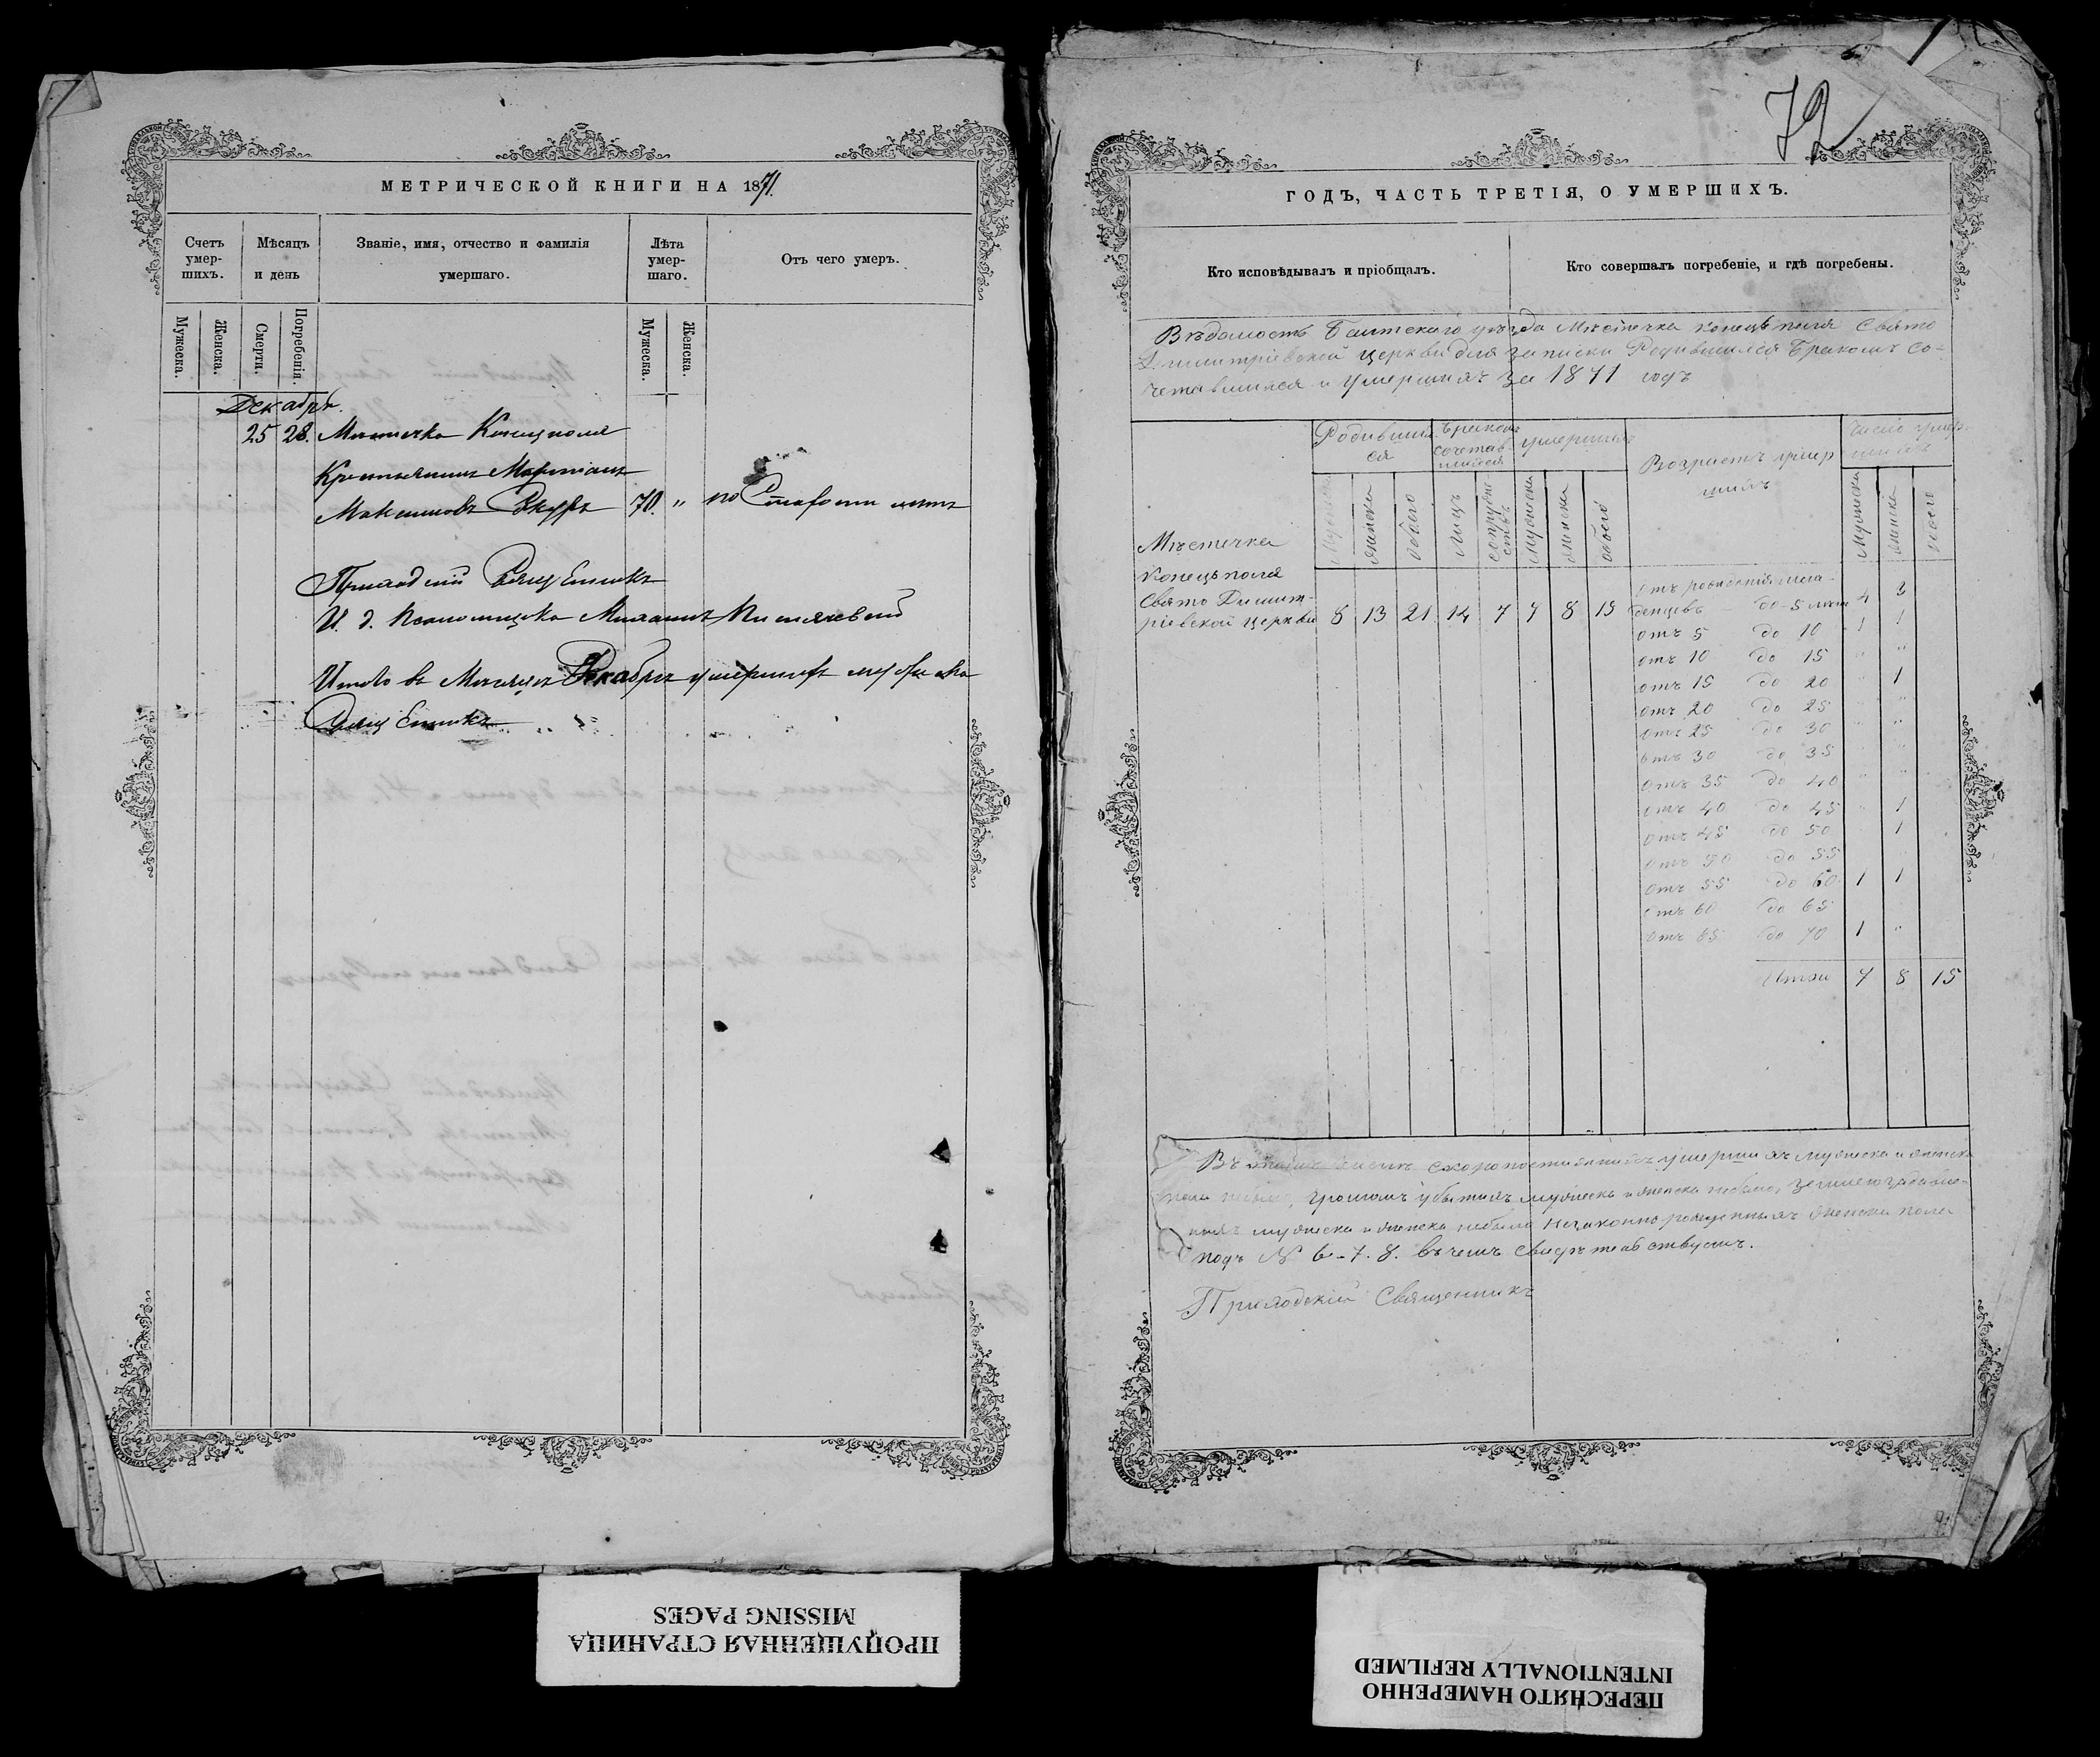 МЕТРИЧЕСКОЙ КНИГИ НА 1871.
Счетъ умер-шихъ.
Мѣсяцъ и день
Званіе, имя, отчество и фамилія умершаго.
Лѣта умер-шаго.
Отъ чего умеръ.
Мужеска.
Женска.
Смерти.
Погребенія.
Мужеска.
Женска.
Декабрь.
25 28. Мѣстечка Конецполя
Крестьянинъ
Максимовъ 70. " по Старости лѣтъ
Приходскій Священникъ
И. д. Псаломщика Михаилъ
Итого въ Мѣсяцѣ Декабрѣ умершихъ мужеска
72
ГОДЪ, ЧАСТЬ ТРЕТІЯ, О УМЕРШИХЪ.
Кто исповѣдывалъ и пріобщалъ.
Кто совершалъ погребеніе, и гдѣ погребены.
Вѣдомость Балтскаго уѣзда Мѣстечка Конецьполя Свято
Димитріевской церкви для записки Родившихся Бракомъ со-
четавшихся и умершихъ за 1871 годъ
Родивших
ся
Бракомъ
сочетав
шихся
умершихъ
Возрастъ умер
шихъ
число умер-
шихъ
мужеска
женска
обоего
лицъ
супруже-
ствъ
мужеска
женска
обоего
мужеска
женска
всего
Мѣстечка
Конецьполя
Свято Димит-
ріевской церкви 8 13 21 14 7 7 8 15
отъ рожденія мла-
денцевъ до 5 лѣтъ 4 3
отъ 5 до 10 1 1
отъ 10 до 15 " "
отъ 15 до 20 " 1
отъ 20 до 25 " "
отъ 25 до 30 " "
отъ 30 до 35 " "
отъ 35 до 40 " "
отъ 40 до 45 " 1
отъ 45 до 50 1
отъ 50 до 55
отъ 55 до 60 1 1
отъ 60 до 65
отъ 65 до 70 1 "
Итои 7 8 15
Въ числѣ скоропостижнихъ умершихъ мужеска и женска
пола небыло, громомъ убытихъ мужеска и женска небыло, землею
мужеска и женска небыло незаконнорожденныхъ женска пола
подъ № 6-7. 8. въ чемъ свидѣтельствуемъ.
Приходскій Священникъ
ПРОПУЩЕННАЯ СТРАНИЦА
MISSING PAGES
ПЕРЕСНЯТО НАМЕРЕННО
INTENTIONALLY REFILMED